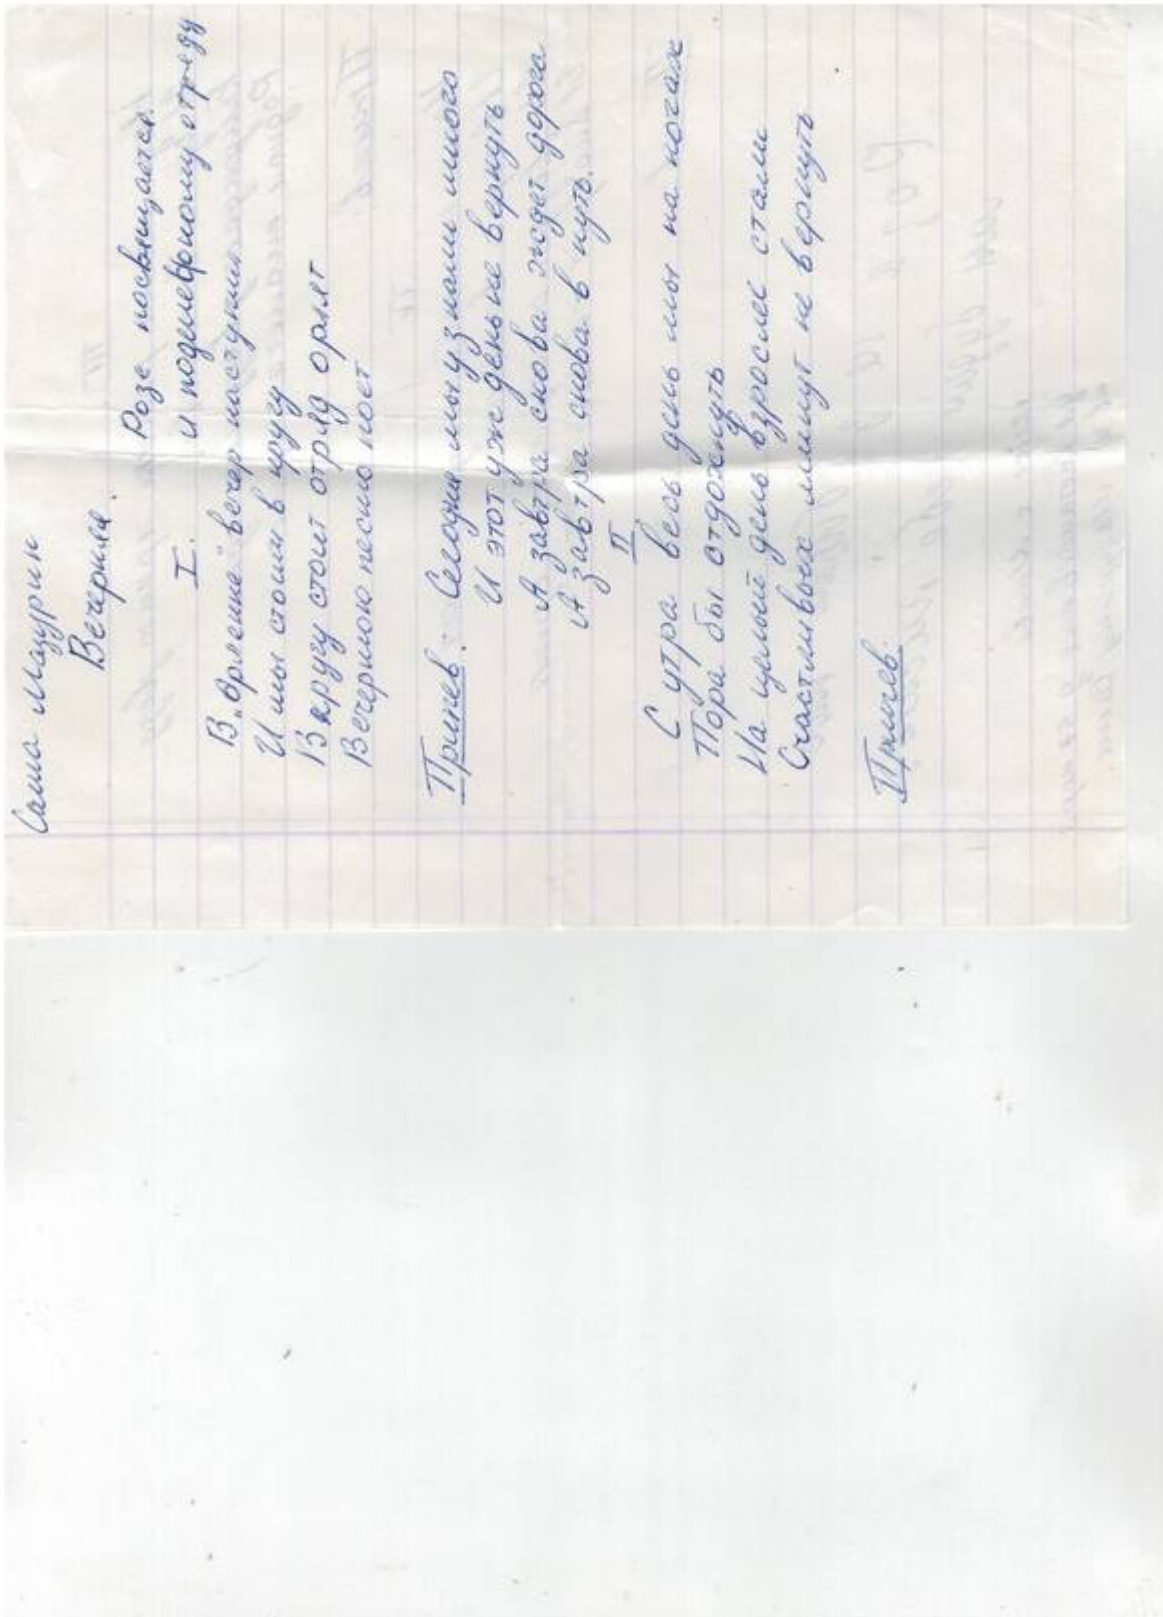 Саша Мазурин
Вечерняя
Розе посвящается.
и подшефному отряду
I.
В „Орленке" вечер наступил
И мы стоим в кругу
В кругу стоит отряд орлят
Вечернюю песню поёт
Припев: Сегодня мы узнали много
И этот уж день не вернуть
А завтра снова ждет дорога
А завтра снова в путь.
II
С утра весь день мы на ногах
Пора бы отдохнуть
На целый день взрослее стали
Счастливых минут не вернуть
Припев.